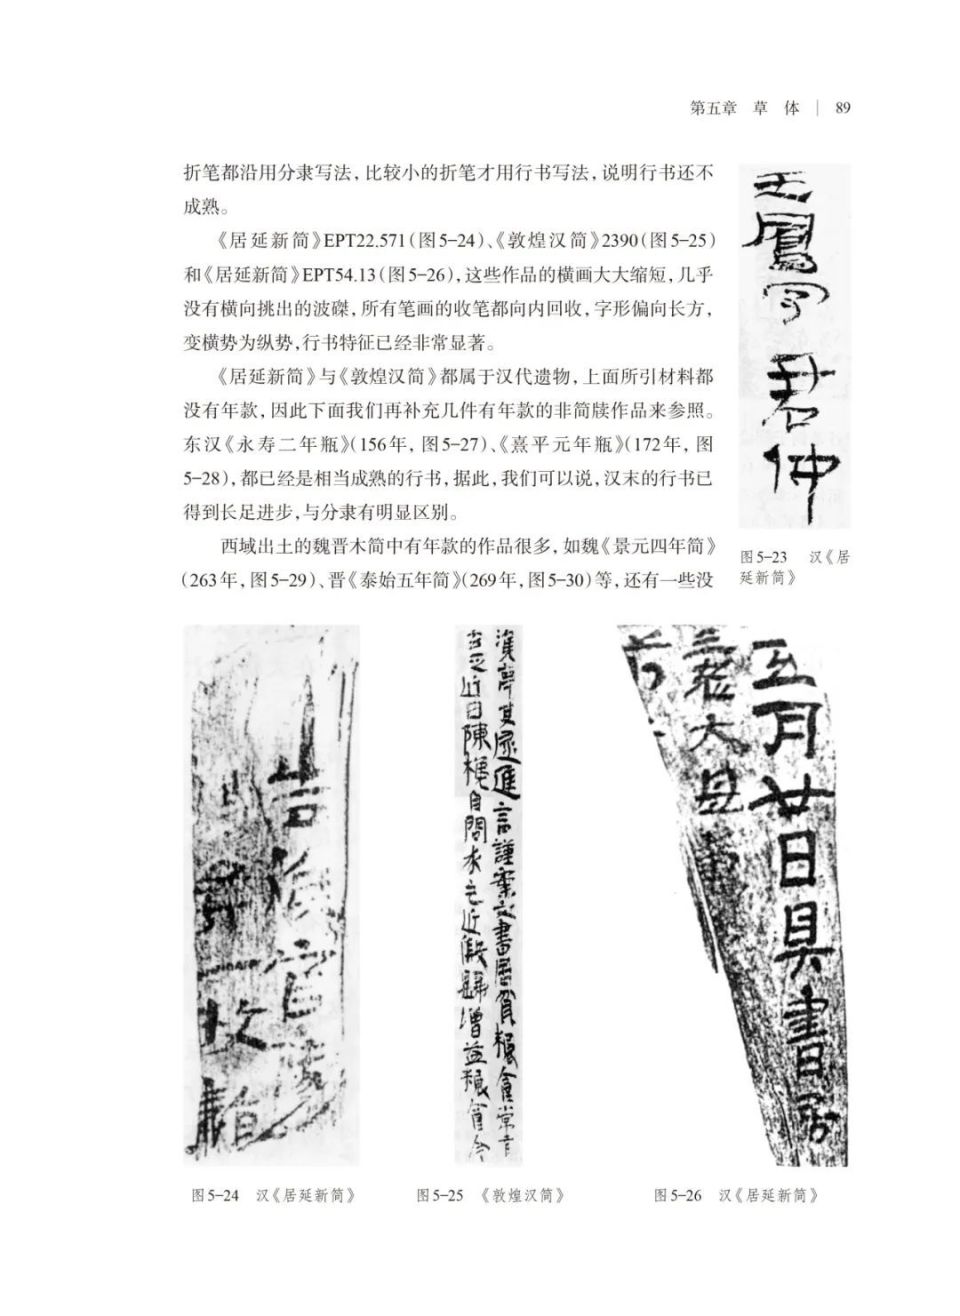 第五章 草 体 | 89
折笔都沿用分隶写法，比较小的折笔才用行书写法，说明行书还不
成熟。
《居延新简》EPT22.571（图5-24）、《敦煌汉简》2390（图5-25）
和《居延新简》EPT54.13（图5-26），这些作品的横画大大缩短，几乎
没有横向挑出的波磔，所有笔画的收笔都向内回收，字形偏向长方，
变横势为纵势，行书特征已经非常显著。
《居延新简》与《敦煌汉简》都属于汉代遗物，上面所引材料都
没有年款，因此下面我们再补充几件有年款的非简牍作品来参照。
东汉《永寿二年瓶》（156年，图5-27）、《熹平元年瓶》（172年，图
5-28），都已经是相当成熟的行书，据此，我们可以说，汉末的行书已
得到长足进步，与分隶有明显区别。
西域出土的魏晋木简中有年款的作品很多，如魏《景元四年简》
（263年，图5-29）、晋《泰始五年简》（269年，图5-30）等，还有一些没
君仲
图5-23 汉《居
延新简》
官
图5-24 汉《居延新简》
進言謹案文書
近日陳
自問
增益
图5-25 《敦煌汉简》
五月廿日具書
大
图5-26 汉《居延新简》